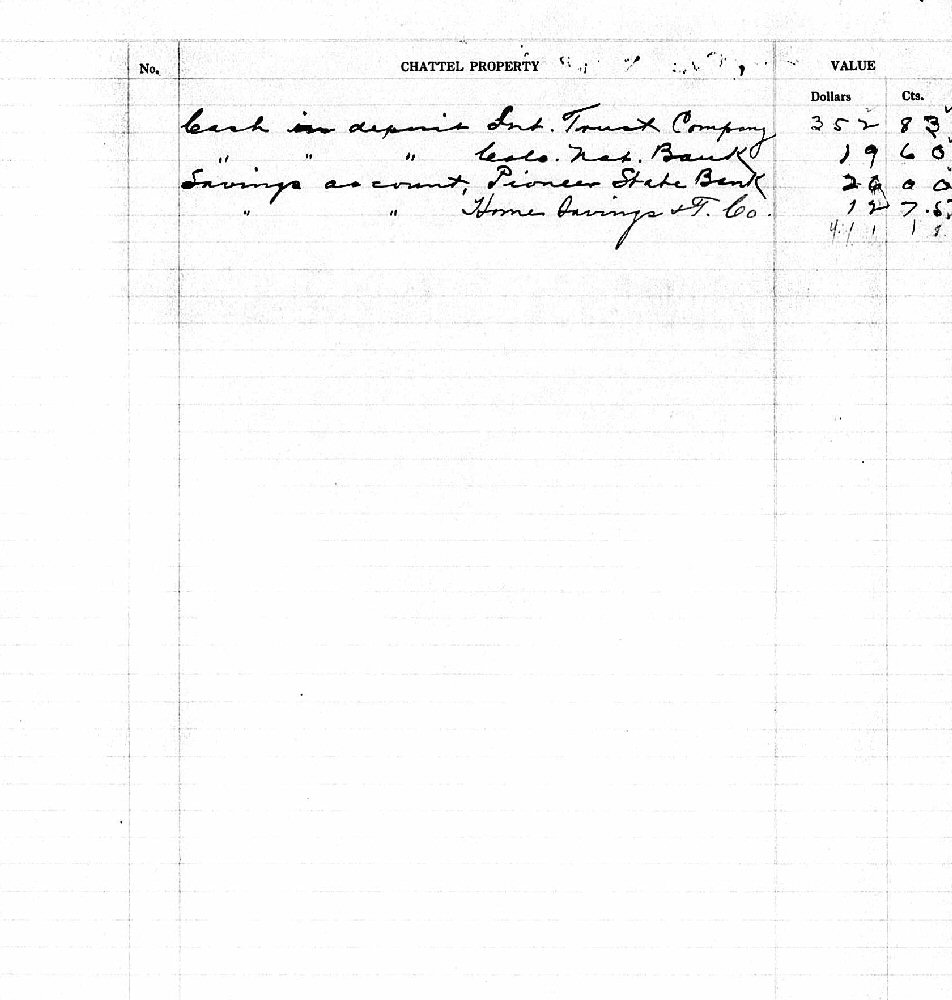 No. CHATTEL PROPERTY VALUE
Dollars Cts.
Cash in deposit Int. Trust Company 352 83
" " " Colo. Nat. Bank 19 60
Savings account, Pioneer State Bank 26 00
" " Home Savings & T. Co. 12 7.5
411 18